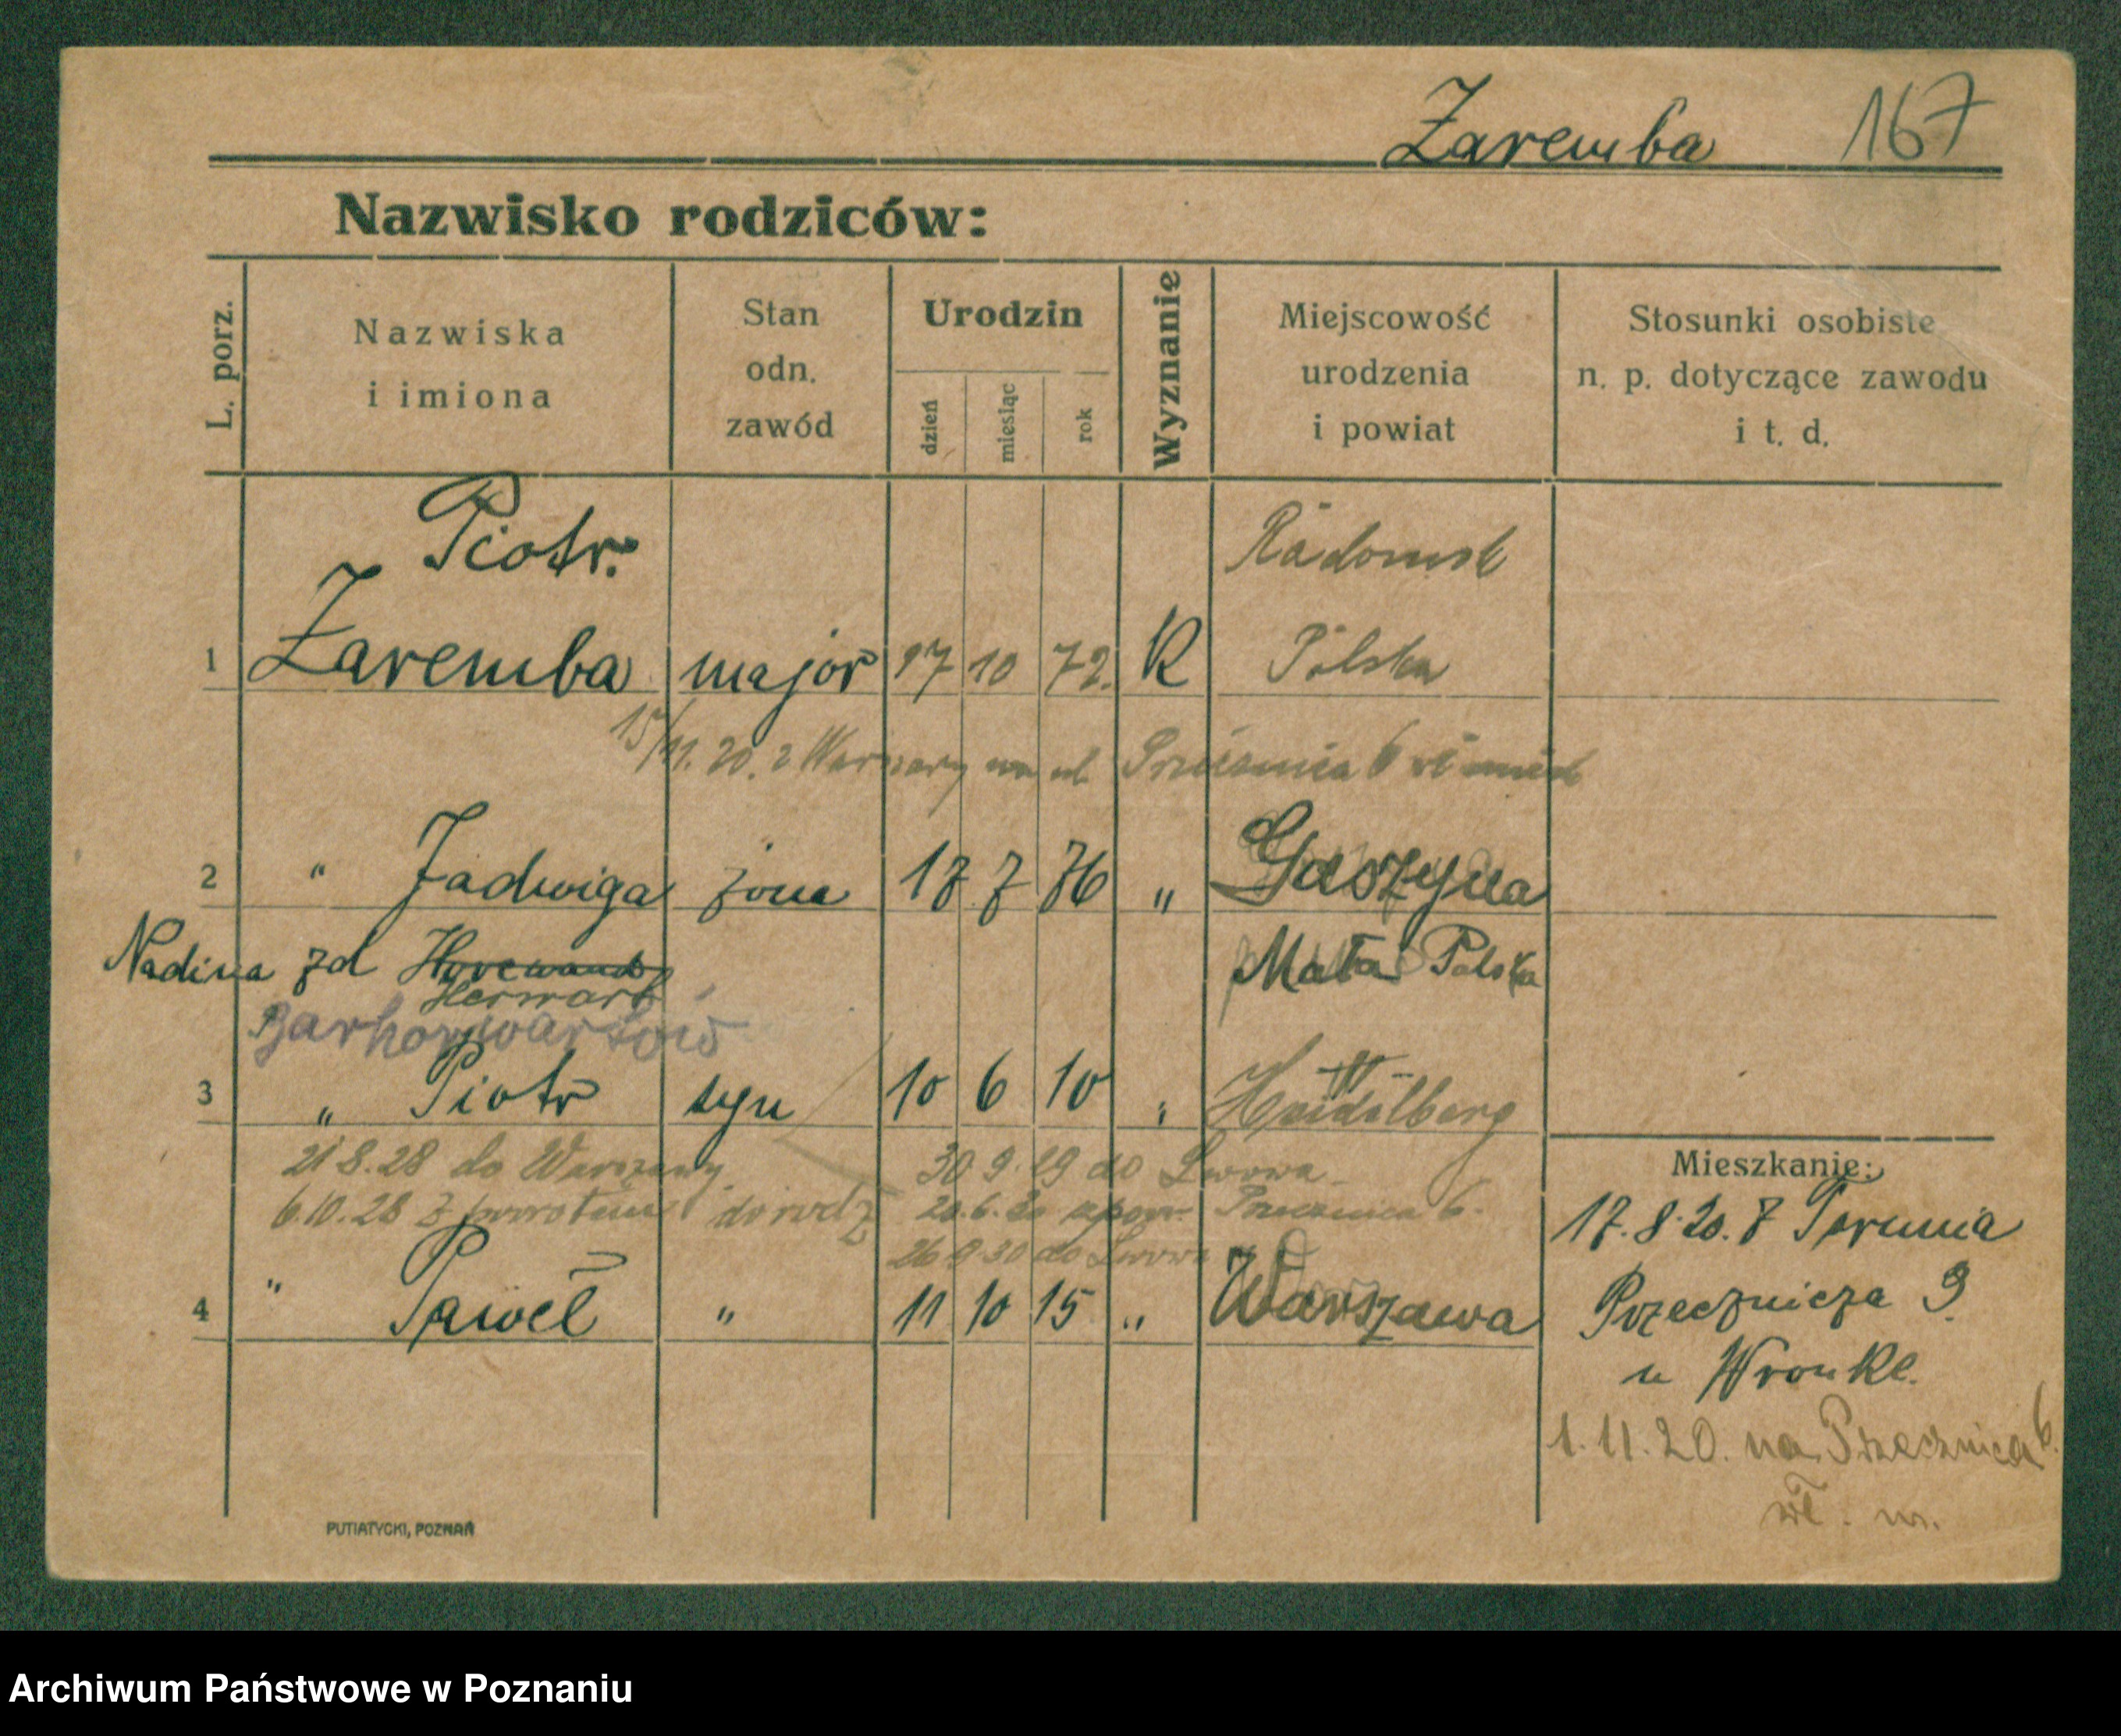 Zaremba 167
Nazwisko rodziców:
L. porz.
Nazwiska
i imiona
Stan
odn.
zawód
Urodzin
dzień
miesiąc
rok
Wyznanie
Miejscowość
urodzenia
i powiat
Stosunki osobiste
n. p. dotyczące zawodu
i t. d.
Piotr. Radomsk
1 Zaremba major 10 72. K Polska
15/11.20. z Warszawy na ul 6
2 " Jadwiga żona 17 7 76 " Gaszyna
Nadina zd Mała Polska
Herwart
3 " Piotr syn 10 6 10 " Heidelberg
21 8.28 do Warszawy 30 9. 29 do Lwowa
6.10.28 z powrotem do rodz 20.6.30 Przecznica 6.
26 9 30 do Lwowa
4 " Paweł " 11 10 15 " Warszawa
Mieszkanie:
17.8.20. z Torunia
Przecznicza 9.
u Wronke.
1.11.20. na Przecznica 6.
wł. m.
PUTIATYCKI, POZNAŃ
Archiwum Państwowe w Poznaniu